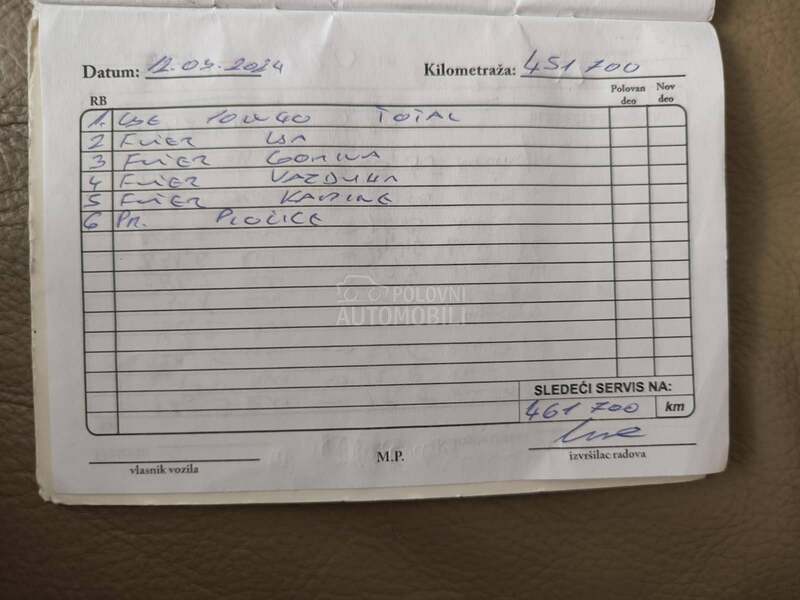 Datum: 12.09.2024 Kilometraža: 451 700
RB Polovan deo Nov deo
1. ULJE 10W40 TOTAL
2 FILTER ULJA
3 FILTER GORIVA
4 FILTER VAZDUHA
5 FILTER KABINE
6 PR. PLOČICE
POLOVNI
AUTOMOBILI
SLEDEĆI SERVIS NA:
461 700 km
vlasnik vozila M.P. izvršilac radova